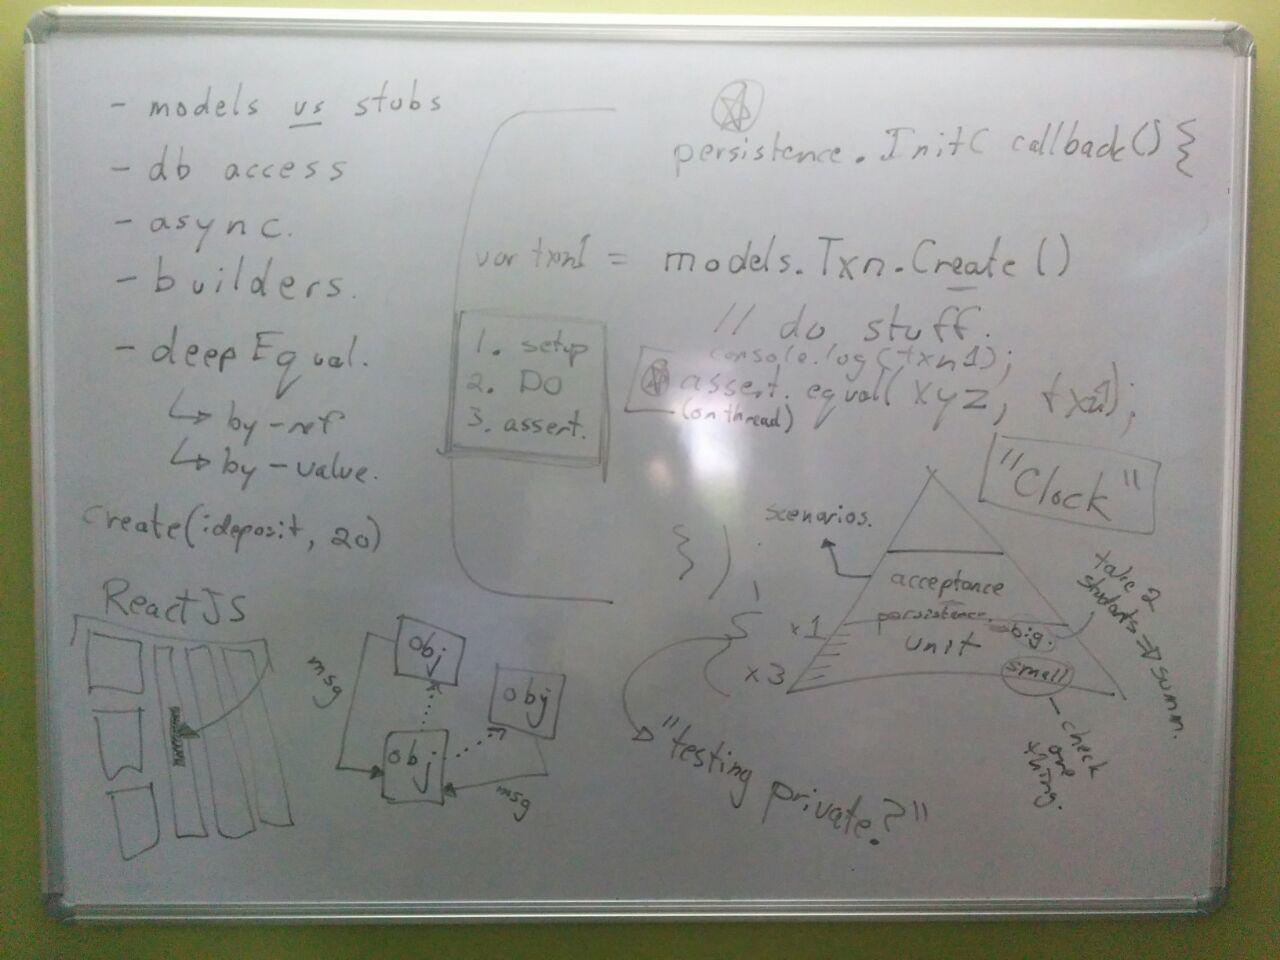 - models vs stubs
- db access
- async.
- builders.
- deepEqual.
↳ by-ref
↳ by-value.
create(:deposit, 20)
ReactJS
persistence.Init( callback() {
var txn1 = models.Txn.Create()
// do stuff.
console.log(txn1);
assert.equal(xyz, txn1);
(on thread)
1. setup
2. DO
3. assert.
} ) ;
"Clock"
scenarios.
acceptance
persistence
x1
unit
big.
x3
small
take 2
students → summ.
check
one
thing.
"testing private?"
obj
obj
obj
msg
msg